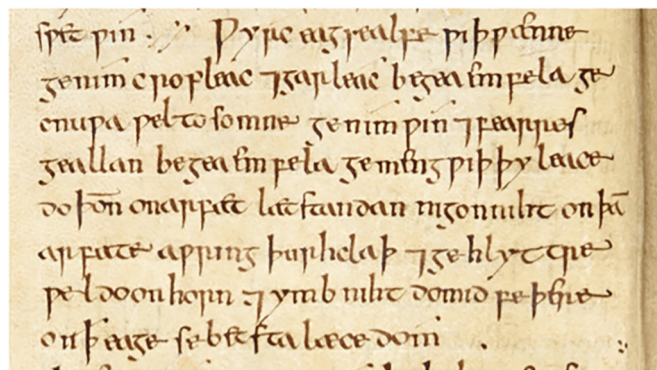 spét ƿin . Ƿyrc eagsealfe ƿiþ ƿænne
genim cropleac ⁊ garleac begea emfela ge
cnuƿa ƿel tosomne genim ƿin ⁊ fearres
geallan begea emfela gemeng ƿiþ þy leace
do þōn on arfæt læt standan nigon niht on þā
arfate aƿring þurh claþ ⁊ gehlyttre
ƿel do on horn ⁊ ymb niht do mid feþre
on ꝥ eage se betsta læcedom .